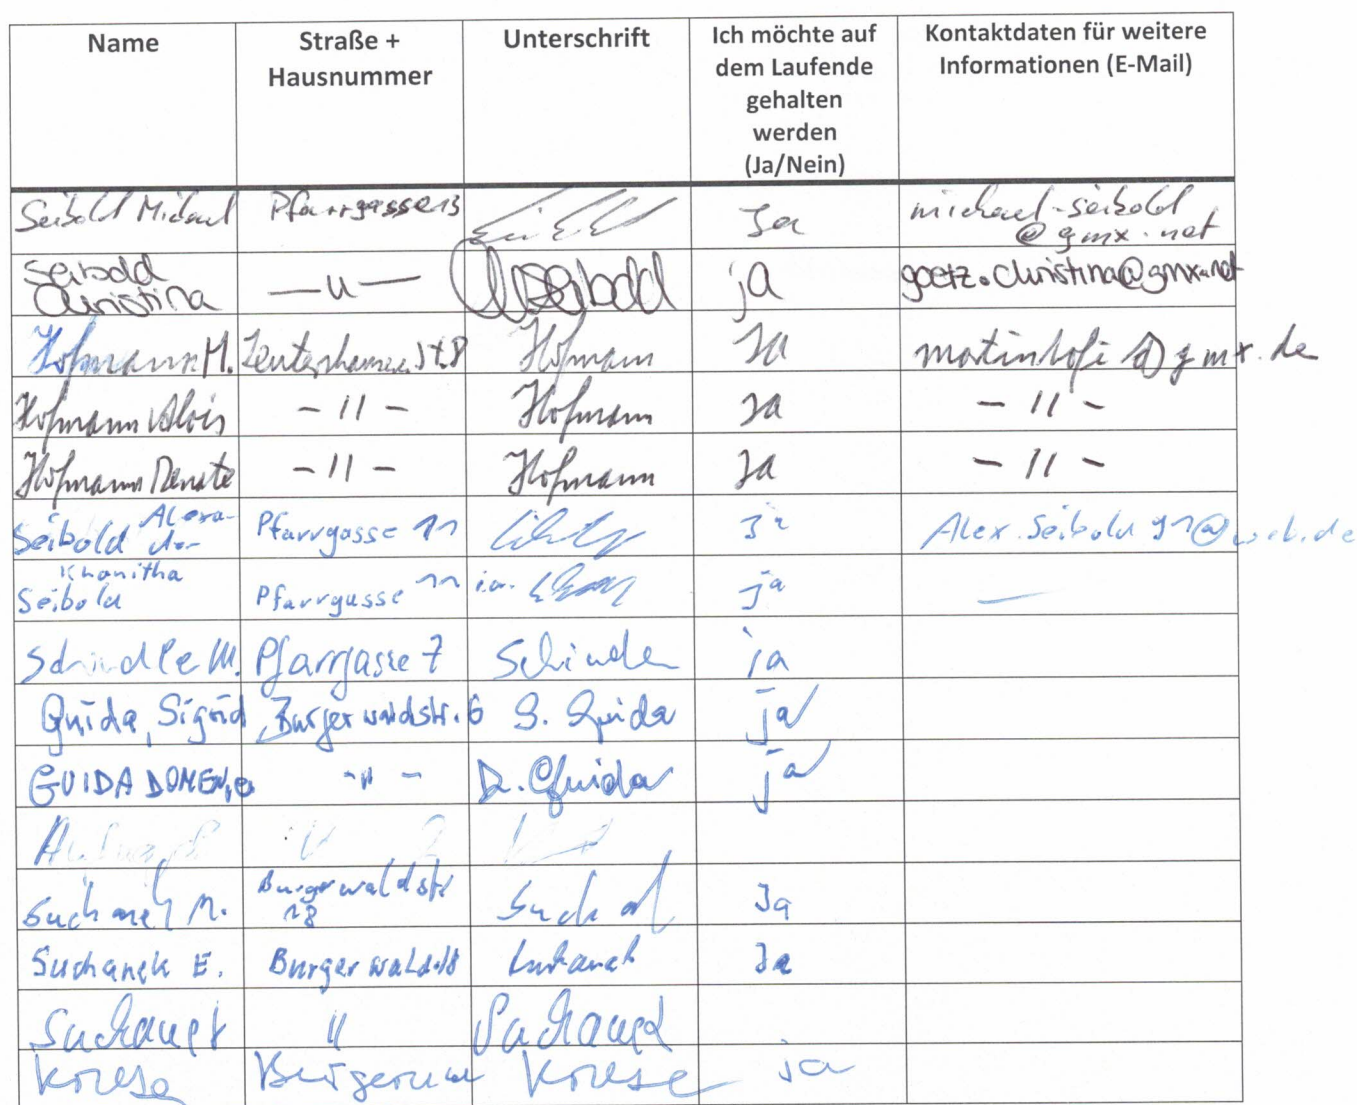 Name Straße + Hausnummer Unterschrift Ich möchte auf dem Laufende gehalten werden (Ja/Nein) Kontaktdaten für weitere Informationen (E-Mail)
Seibold Michael Pfarrgasse 13 Ja michael-seibold
@gmx.net
Seibold
Christina —"— Seibold ja goetz.christina@gmx.net
Hofmann M. St. 8 Hofmann Ja martinhofi@gmx.de
Hofmann Alois - " - Hofmann Ja - " -
Hofmann Renate - " - Hofmann Ja - " -
Seibold Alexa-
der Pfarrgasse 11 ja Alex.Seibold91@web.de
Khanitha
Seibold Pfarrgasse 11 ja —
Schindle M. Pfarrgasse 7 ja
Guida, Sigrid Burgerwaldstr. 6 S. Guida ja
GUIDA - " - D. Guida ja
Suchanek M. Burgerwaldstr
18 Ja
Suchanek E. Burgerwald 18 Suchanek Ja
Suchanek " Suchanek
Kruse Kruse ja